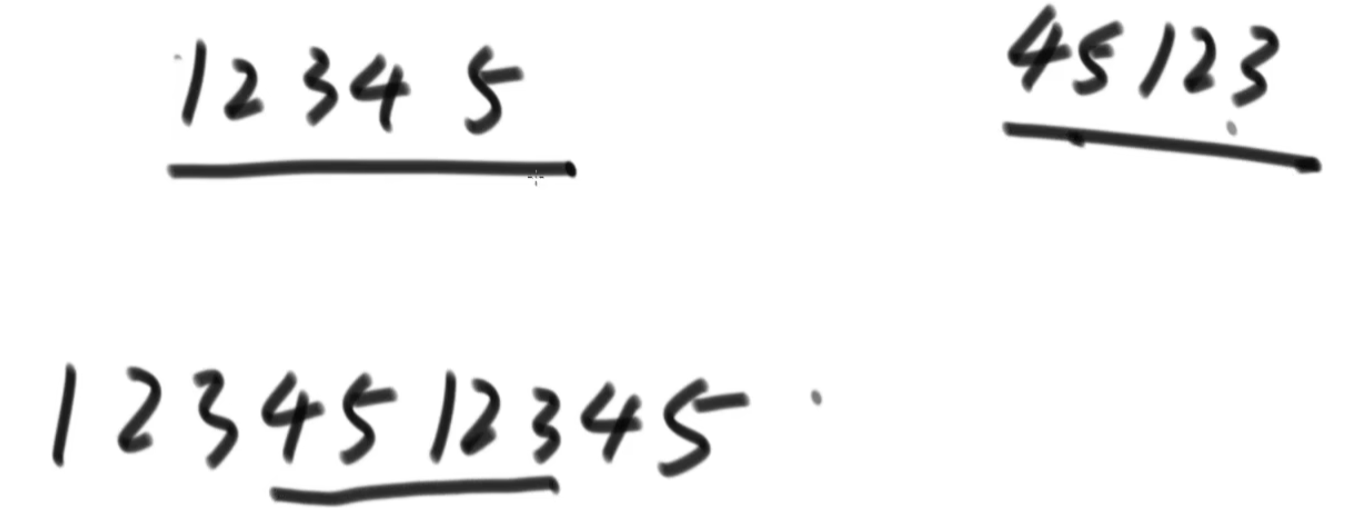 12345
45123
1234512345